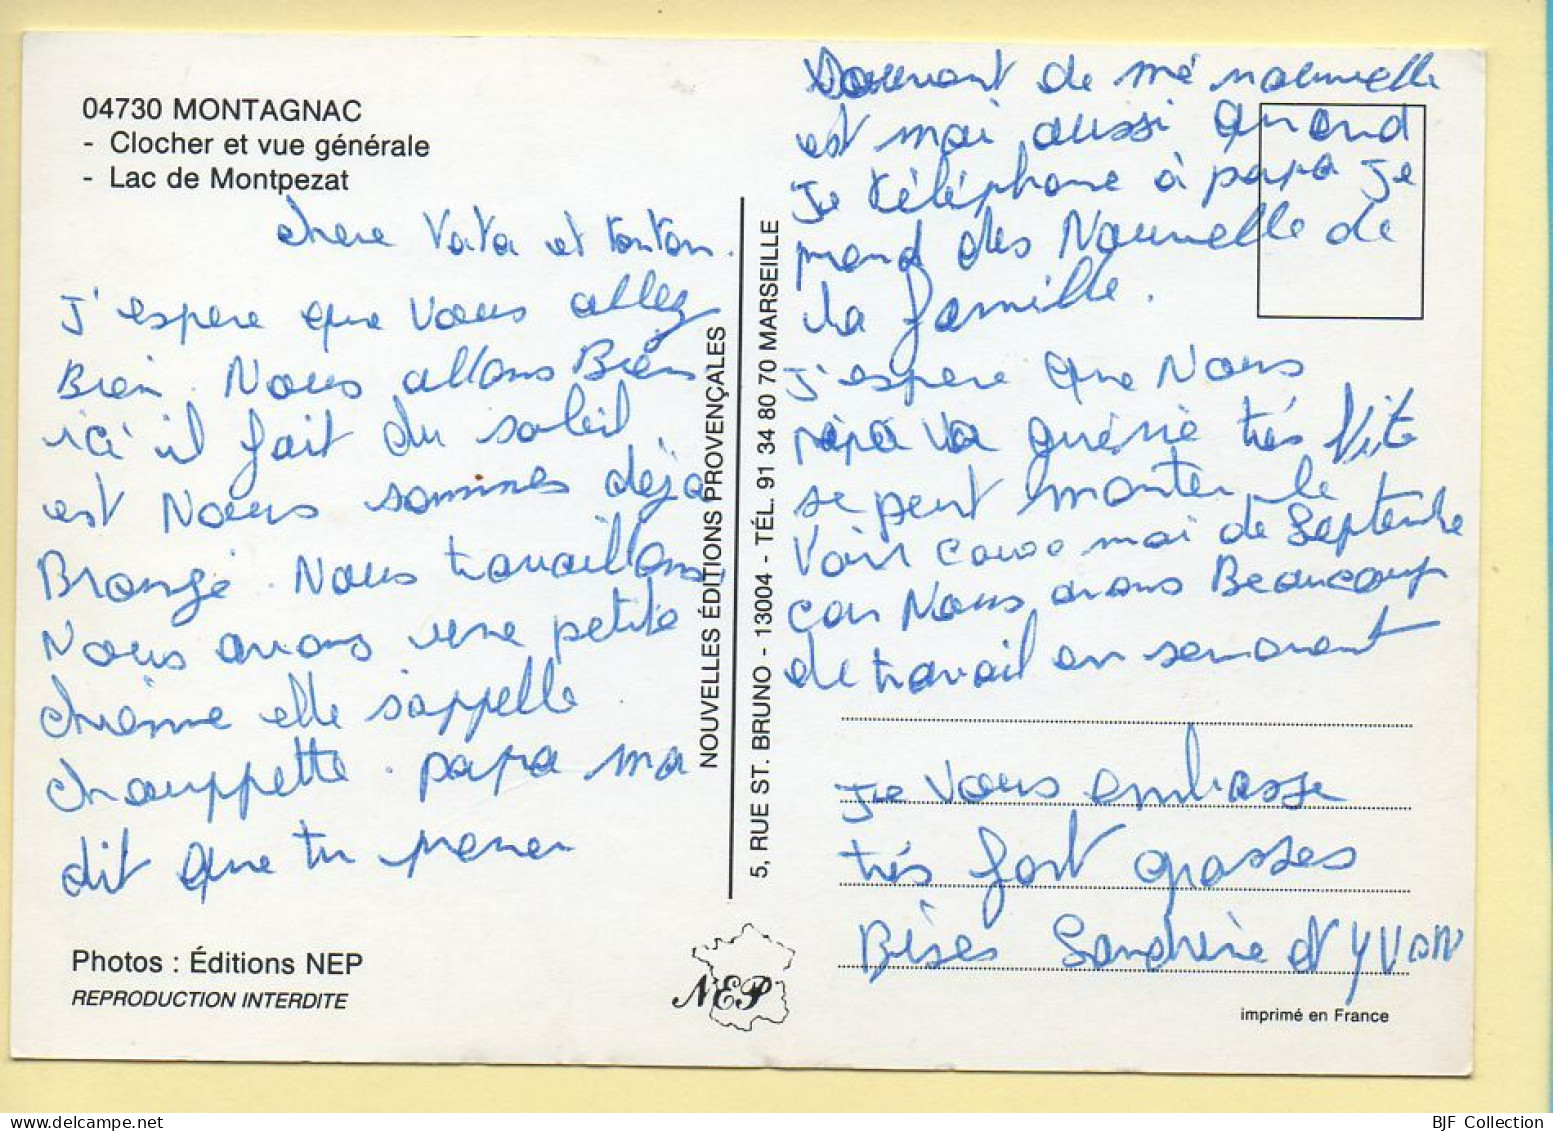 04730 MONTAGNAC
- Clocher et vue générale
- Lac de Montpezat
chere Tata et tonton.
J'espere que Vous allez
Bien. Nous allons Bien
ici il fait du soleil
est Nous sommes déjà
Bronzé. Nous travaillons,
Nous avons une petite
chienne elle s'appelle
chouppette. papa ma
dit que tu prener
Photos : Éditions NEP
REPRODUCTION INTERDITE
NOUVELLES ÉDITIONS PROVENÇALES
5, RUE ST. BRUNO - 13004 - TÉL. 91 34 80 70 MARSEILLE
NEP
souvant de mé nouvelle
est moi aussi quand
Je téléphone à papa je
prend des Nouvelle de
la famille.
J'espere que Nous
papa va guérié trés Vite
se peut monter le
Voir moi de Septembre
car Nous avons Beaucoup
de travail en
Je Vous embrasse
trés fort grosses
Bises Sandrine et YVON
imprimé en France
BJF Collection